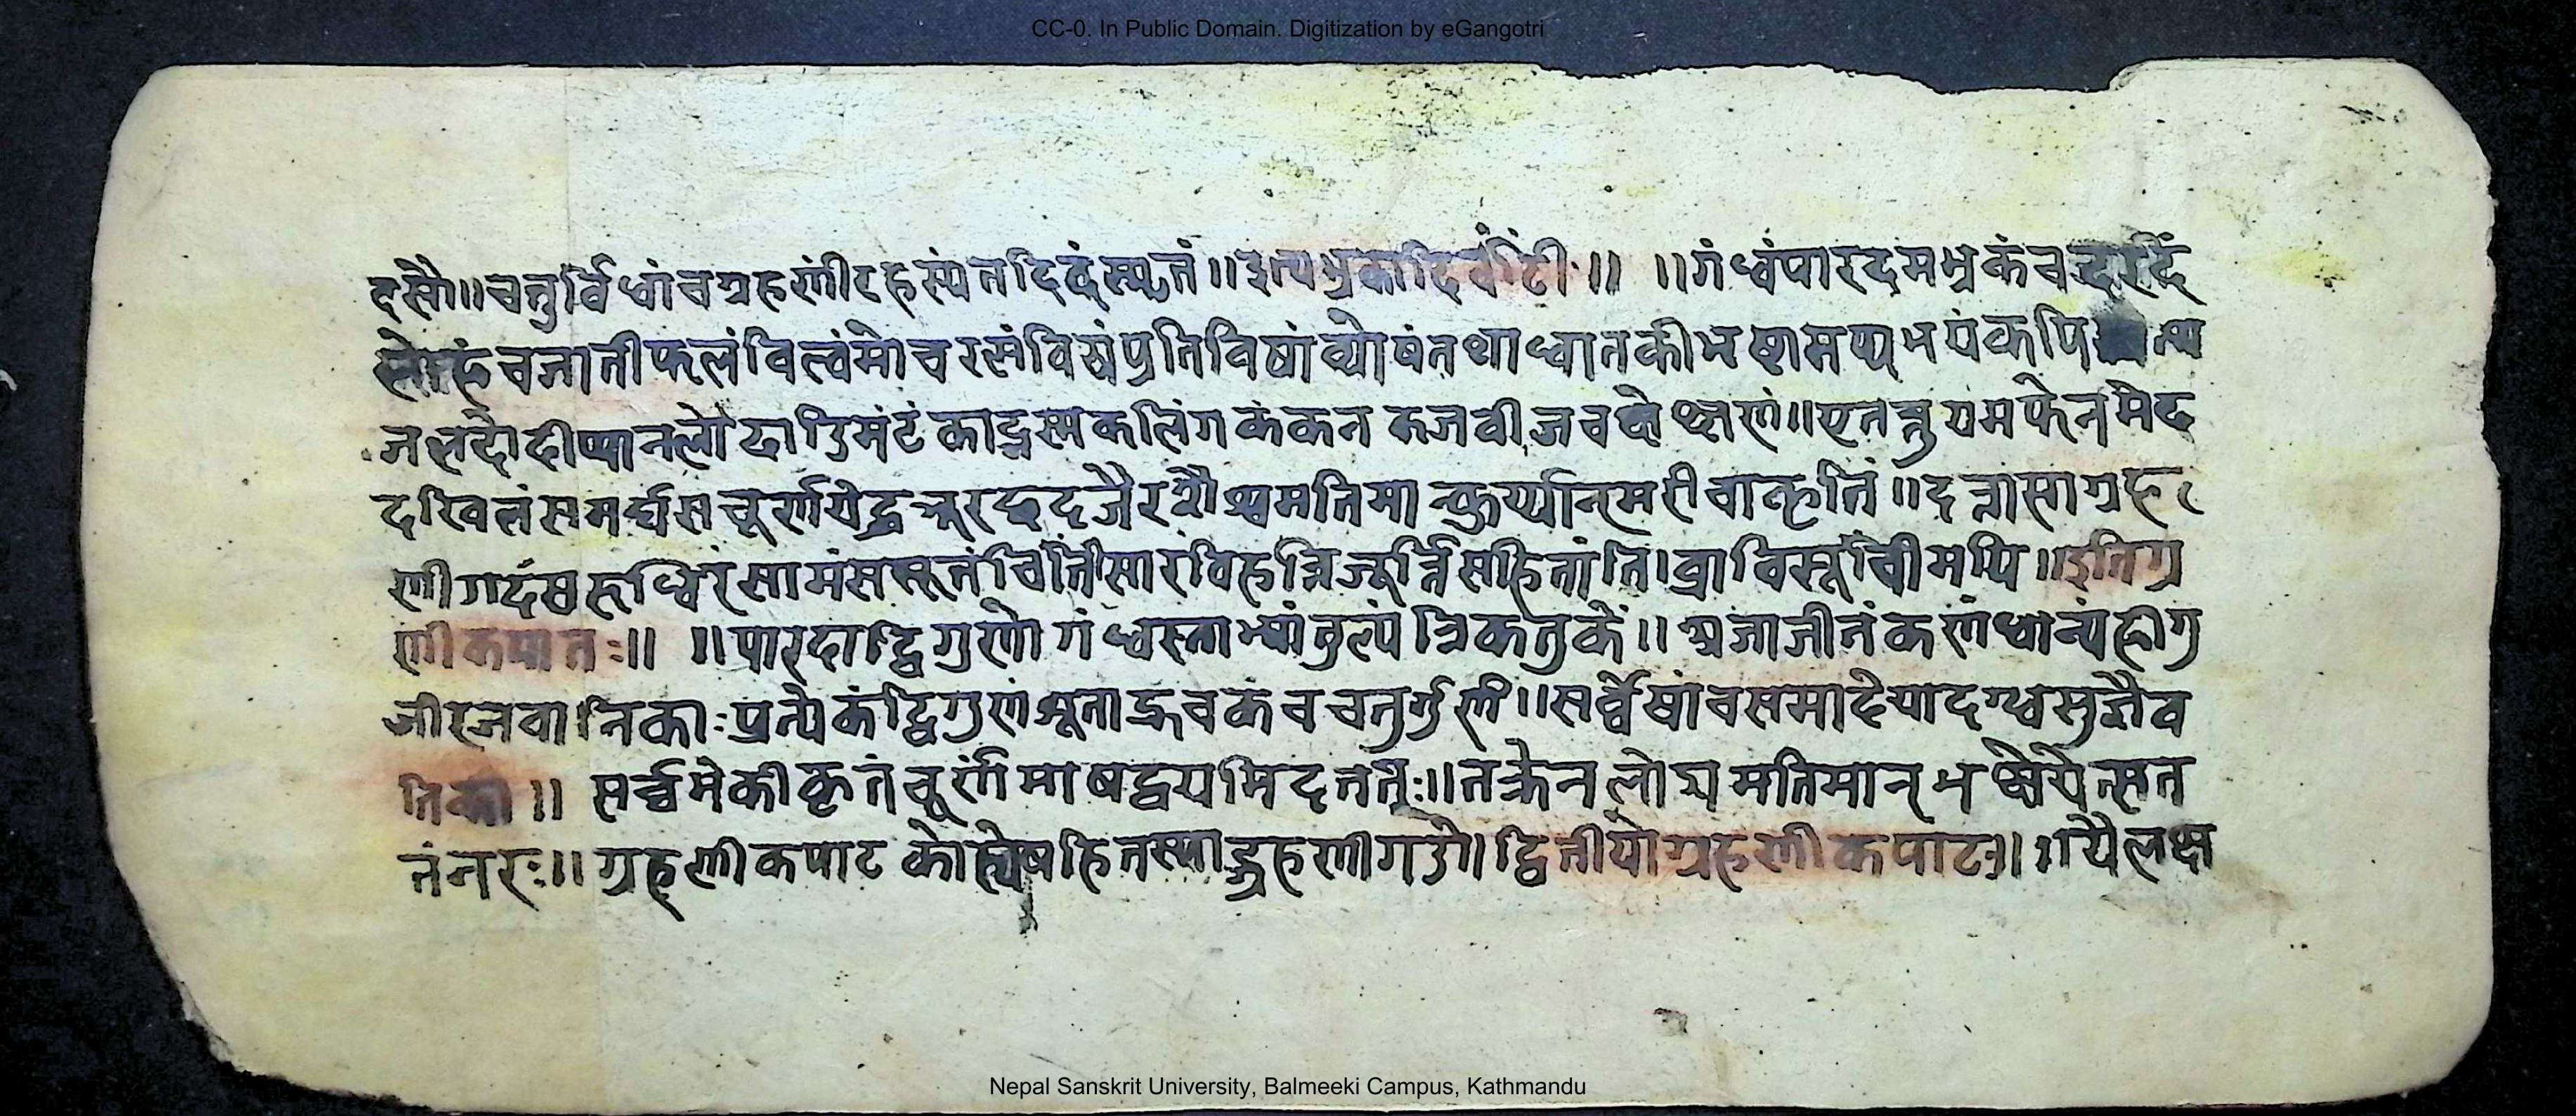 CC-0. In Public Domain. Digitization by eGangotri
दसौ॥चतुर्विधांचग्रहणींरहस्यंतदिदंस्मृतं॥इत्यभ्रकादिवटीः॥ ॥गंधंपारदमभ्रकंचदरदं
लोहंचजातीफलंविल्वंमोचरसंविषंप्रतिविषांव्योषंतथाधातकीभष्टामप्यभयंकपि
जलदौदीप्यानलोदाडिमंटंकाद्भस्मकलिंगकंकनकजवीजचक्षेक्षणं॥एतत्तुयमफेनमेद
दखिलंसमर्द्यसचूर्णयेद्धत्तूरछदजैरसैश्चमतिमान्कुर्य्यान्मरीचाकृतिं॥दत्तासाग्रह
णीगदंषरूधिरंसामंससूलंचितीसारंविहन्निजूर्त्तिसहितांति।व्राविसूचीमपि॥इतिग्र
णीकपातः॥ ॥पारदाद्विगुणोगंधस्ताभ्यांतुल्यंत्रिकतुकें॥अजाजीनंकणंधान्यंहीगु
जीरजवानिकाःप्रत्येकंद्विगुणंश्रूताद्रुचकंचचतुर्गुणं॥सर्व्वेषांचसमादेयादग्धसुजैव
तिका॥ सर्व्वमेकीकृतंचूर्णंमाषद्वयमिदंततुः॥तक्रेनलोयमतिमान्भक्षेयेत्सत
तंनरः॥ग्रहणीकपाटकोह्येषहितस्याद्ग्रहणीगडौ॥द्वितीयोग्रहणीकपाटः॥ ॥यैलक्ष
Nepal Sanskrit University, Balmeeki Campus, Kathmandu